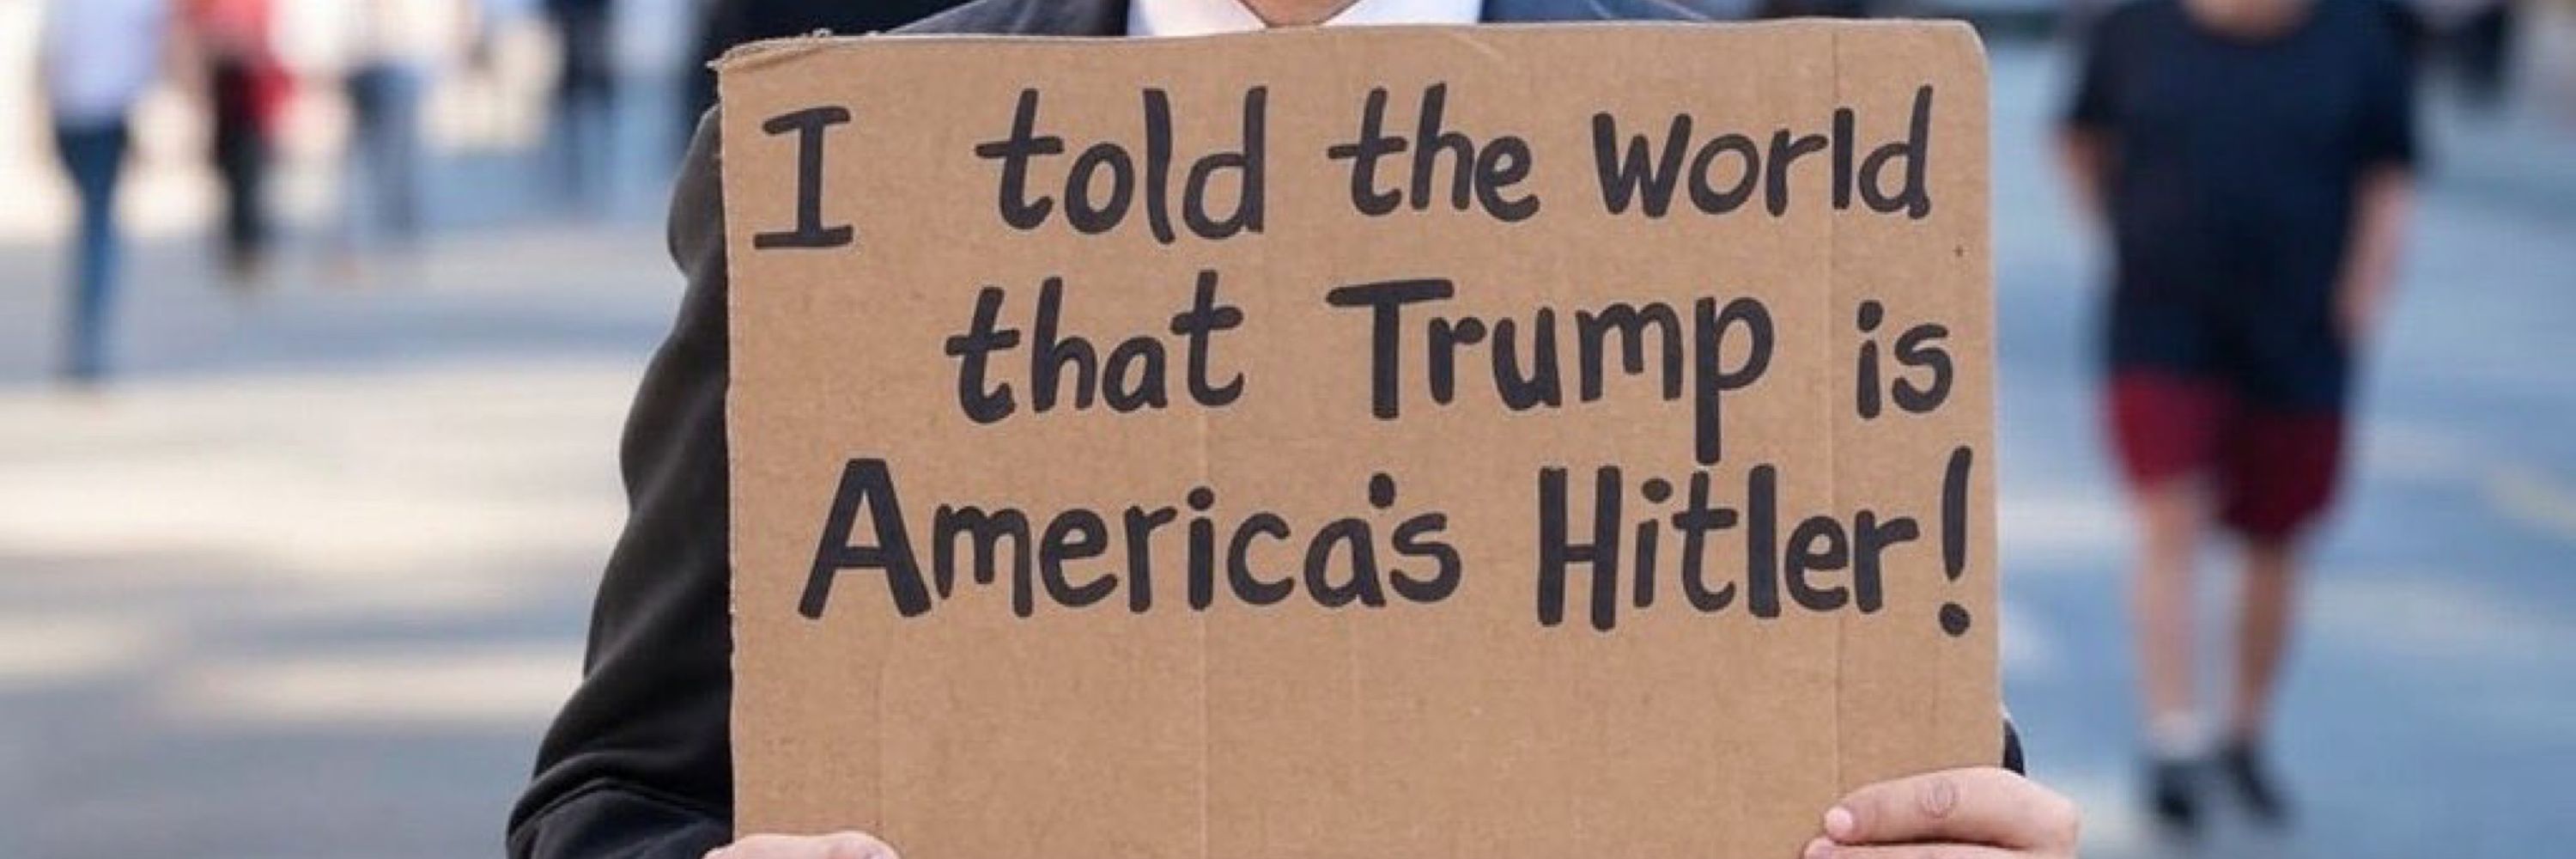 I told the world
that Trump is
America's Hitler!